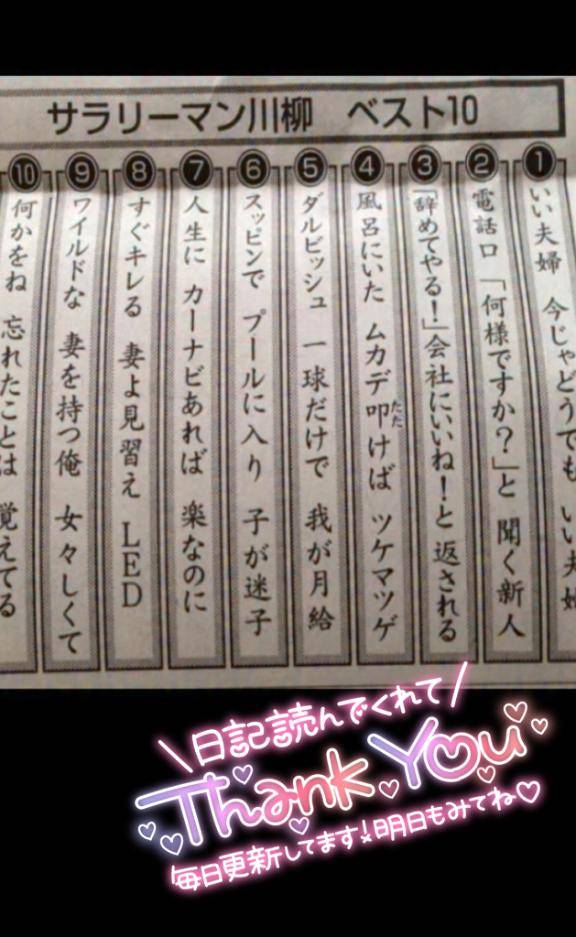 サラリーマン川柳 ベスト10
1 いい夫婦 今じゃどうでも いい夫婦
2 電話口 「何様ですか?」と 聞く新人
3 「辞めてやる!」会社にいいね!と 返される
4 風呂にいた ムカデ叩けば ツケマツゲ
たた
5 ダルビッシュ 一球だけで 我が月給
6 スッピンで プールに入り 子が迷子
7 人生に カーナビあれば 楽なのに
8 すぐキレる 妻よ見習え LED
9 ワイルドな 妻を持つ俺 女々しくて
10 何かをね 忘れたことは 覚えてる
\日記読んでくれて/
Thank You
毎日更新してます!明日もみてね♡